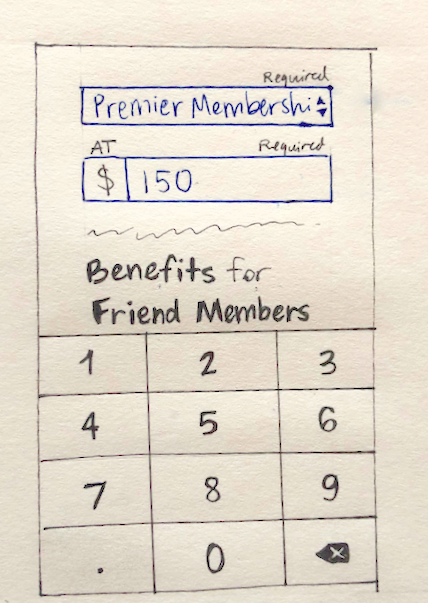 Required
Premier Membershi
AT Required
$ 150
Benefits for
Friend Members
1 2 3
4 5 6
7 8 9
. 0